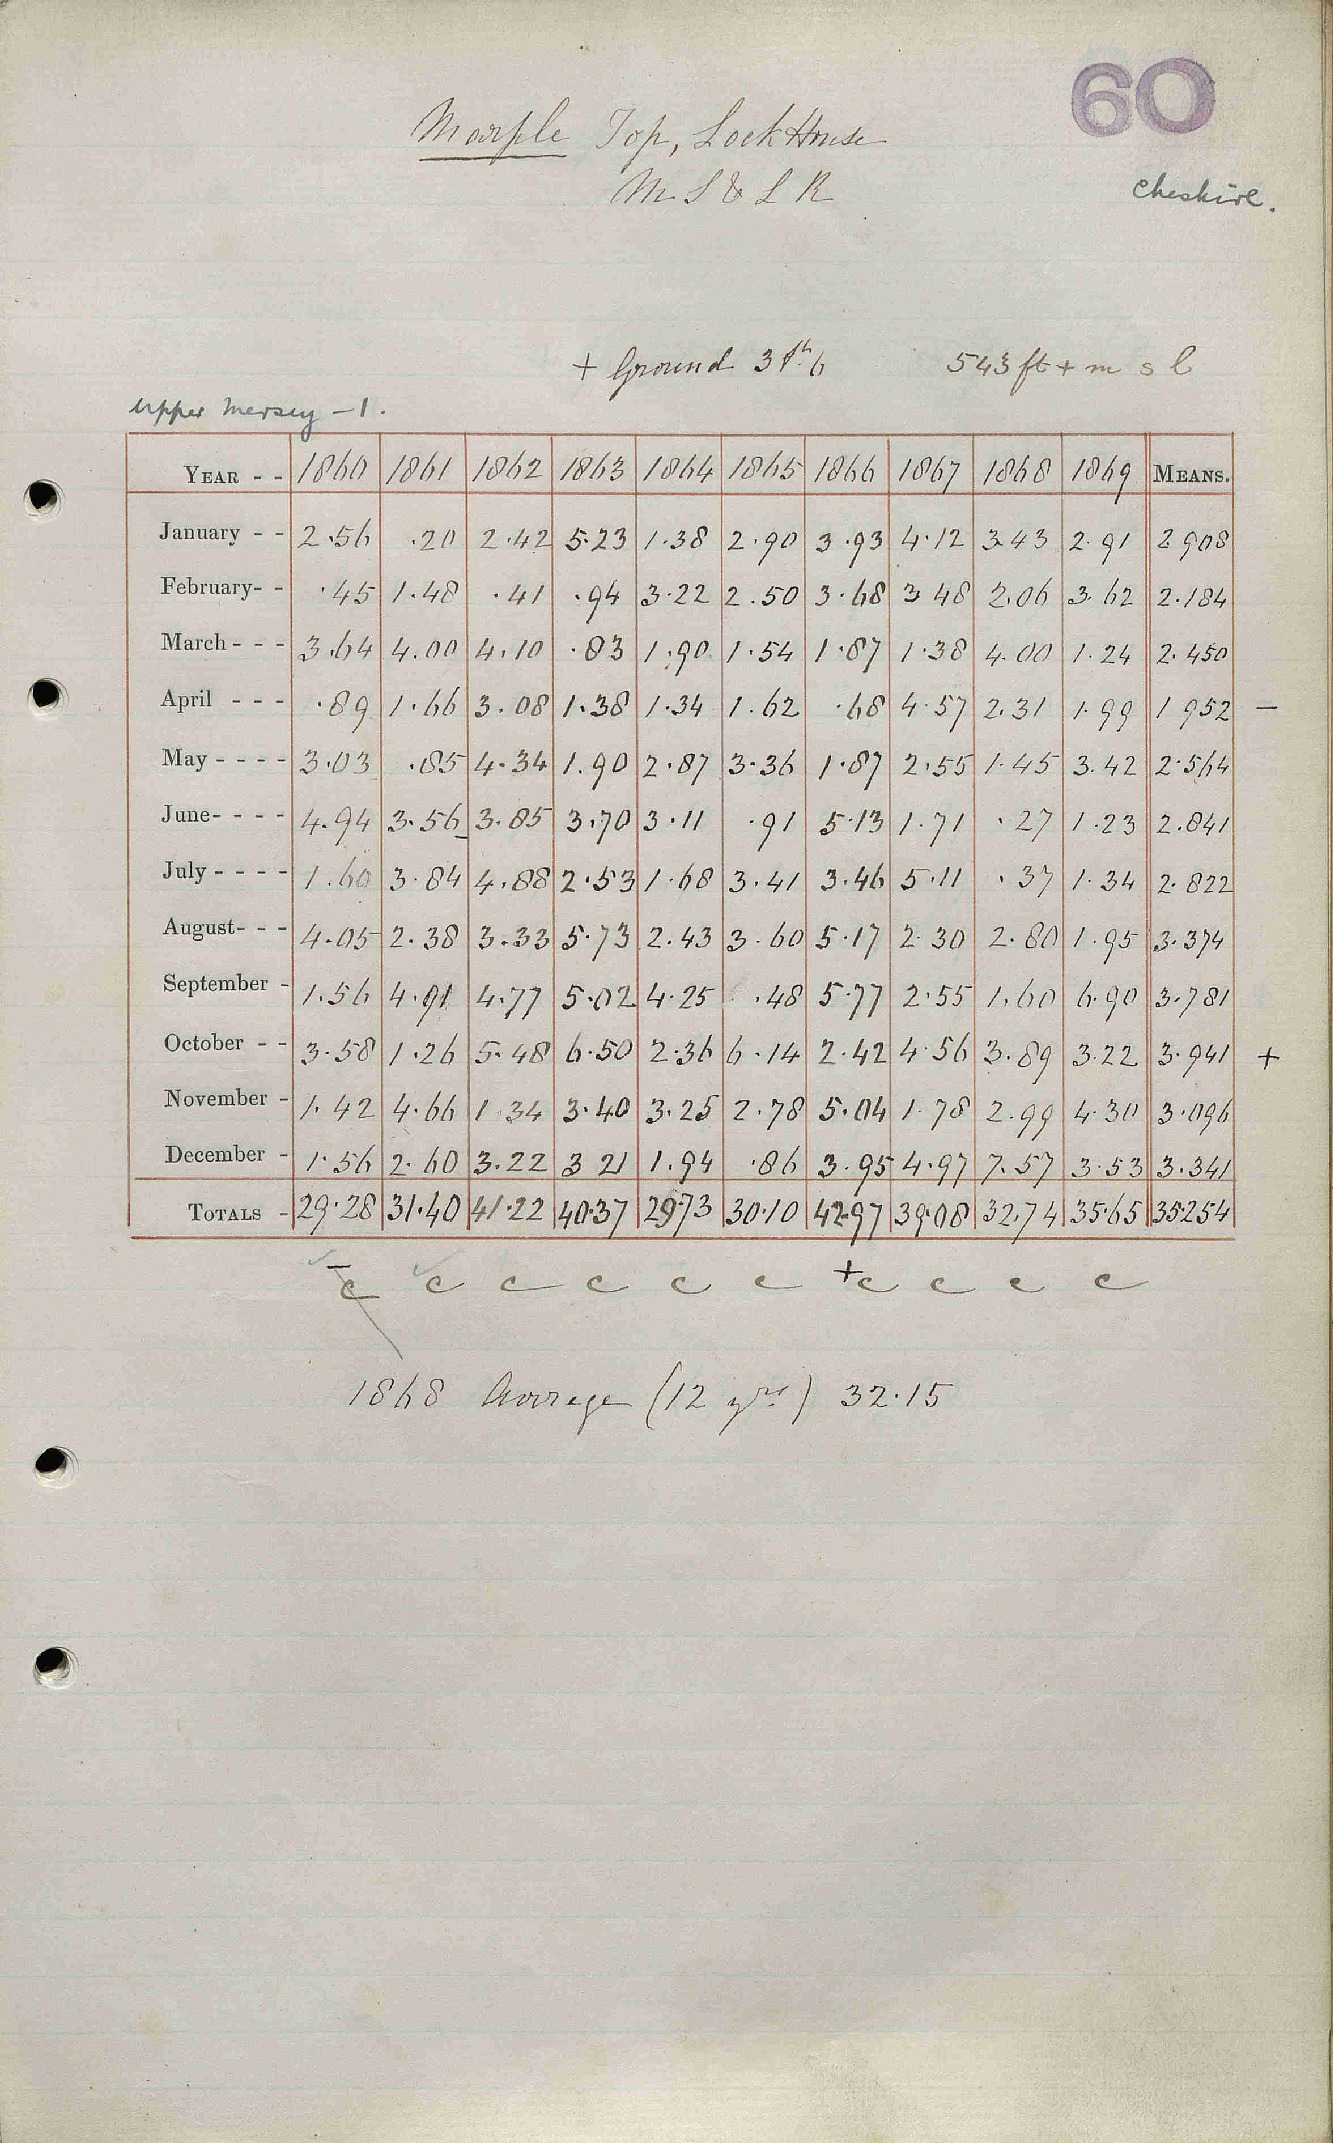 60
Marple Top, Lock House
M S & L R
Cheshire.
+ Ground 3 ft 6 543 ft + m s l
Upper Mersey - 1.
YEAR - - 1860 1861 1862 1863 1864 1865 1866 1867 1868 1869 MEANS.
January - - 2.56 .20 2.42 5.23 1.38 2.90 3.93 4.12 3.43 2.91 2 908
February - - .45 1.48 .41 .94 3.22 2.50 3.68 3 48 2.06 3.62 2.184
March - - - 3.64 4.00 4.10 .83 1.90 1.54 1.87 1.38 4.00 1.24 2.450
April - - - .89 1.66 3.08 1.38 1.34 1.62 .68 4.57 2.31 1.99 1 952 -
May - - - - 3.03 .85 4.34 1.90 2.87 3.36 1.87 2.55 1.45 3.42 2.564
June - - - - 4.94 3.56 3.85 3.70 3.11 .91 5.13 1.71 .27 1.23 2.841
July - - - - 1.60 3.84 4.88 2.53 1.68 3.41 3.46 5.11 .37 1.34 2.822
August - - - 4.05 2.38 3.33 5.73 2.43 3.60 5.17 2.30 2.80 1.95 3.374
September - 1.56 4.91 4.77 5.02 4.25 .48 5.77 2.55 1.60 6.90 3.781
October - - 3.58 1.26 5.48 6.50 2.36 6.14 2.42 4.56 3.89 3.22 3.941 +
November - 1.42 4.66 1.34 3.40 3.25 2.78 5.04 1.78 2.99 4.30 3.096
December - 1.56 2.60 3.22 3 21 1.94 .86 3.95 4.97 7.57 3.53 3.341
TOTALS - 29.28 31.40 41.22 40.37 29.73 30.10 42.97 39.08 32.74 35.65 35.254
- c c c c c c + c c c c
1868 Average (12 yrs) 32.15